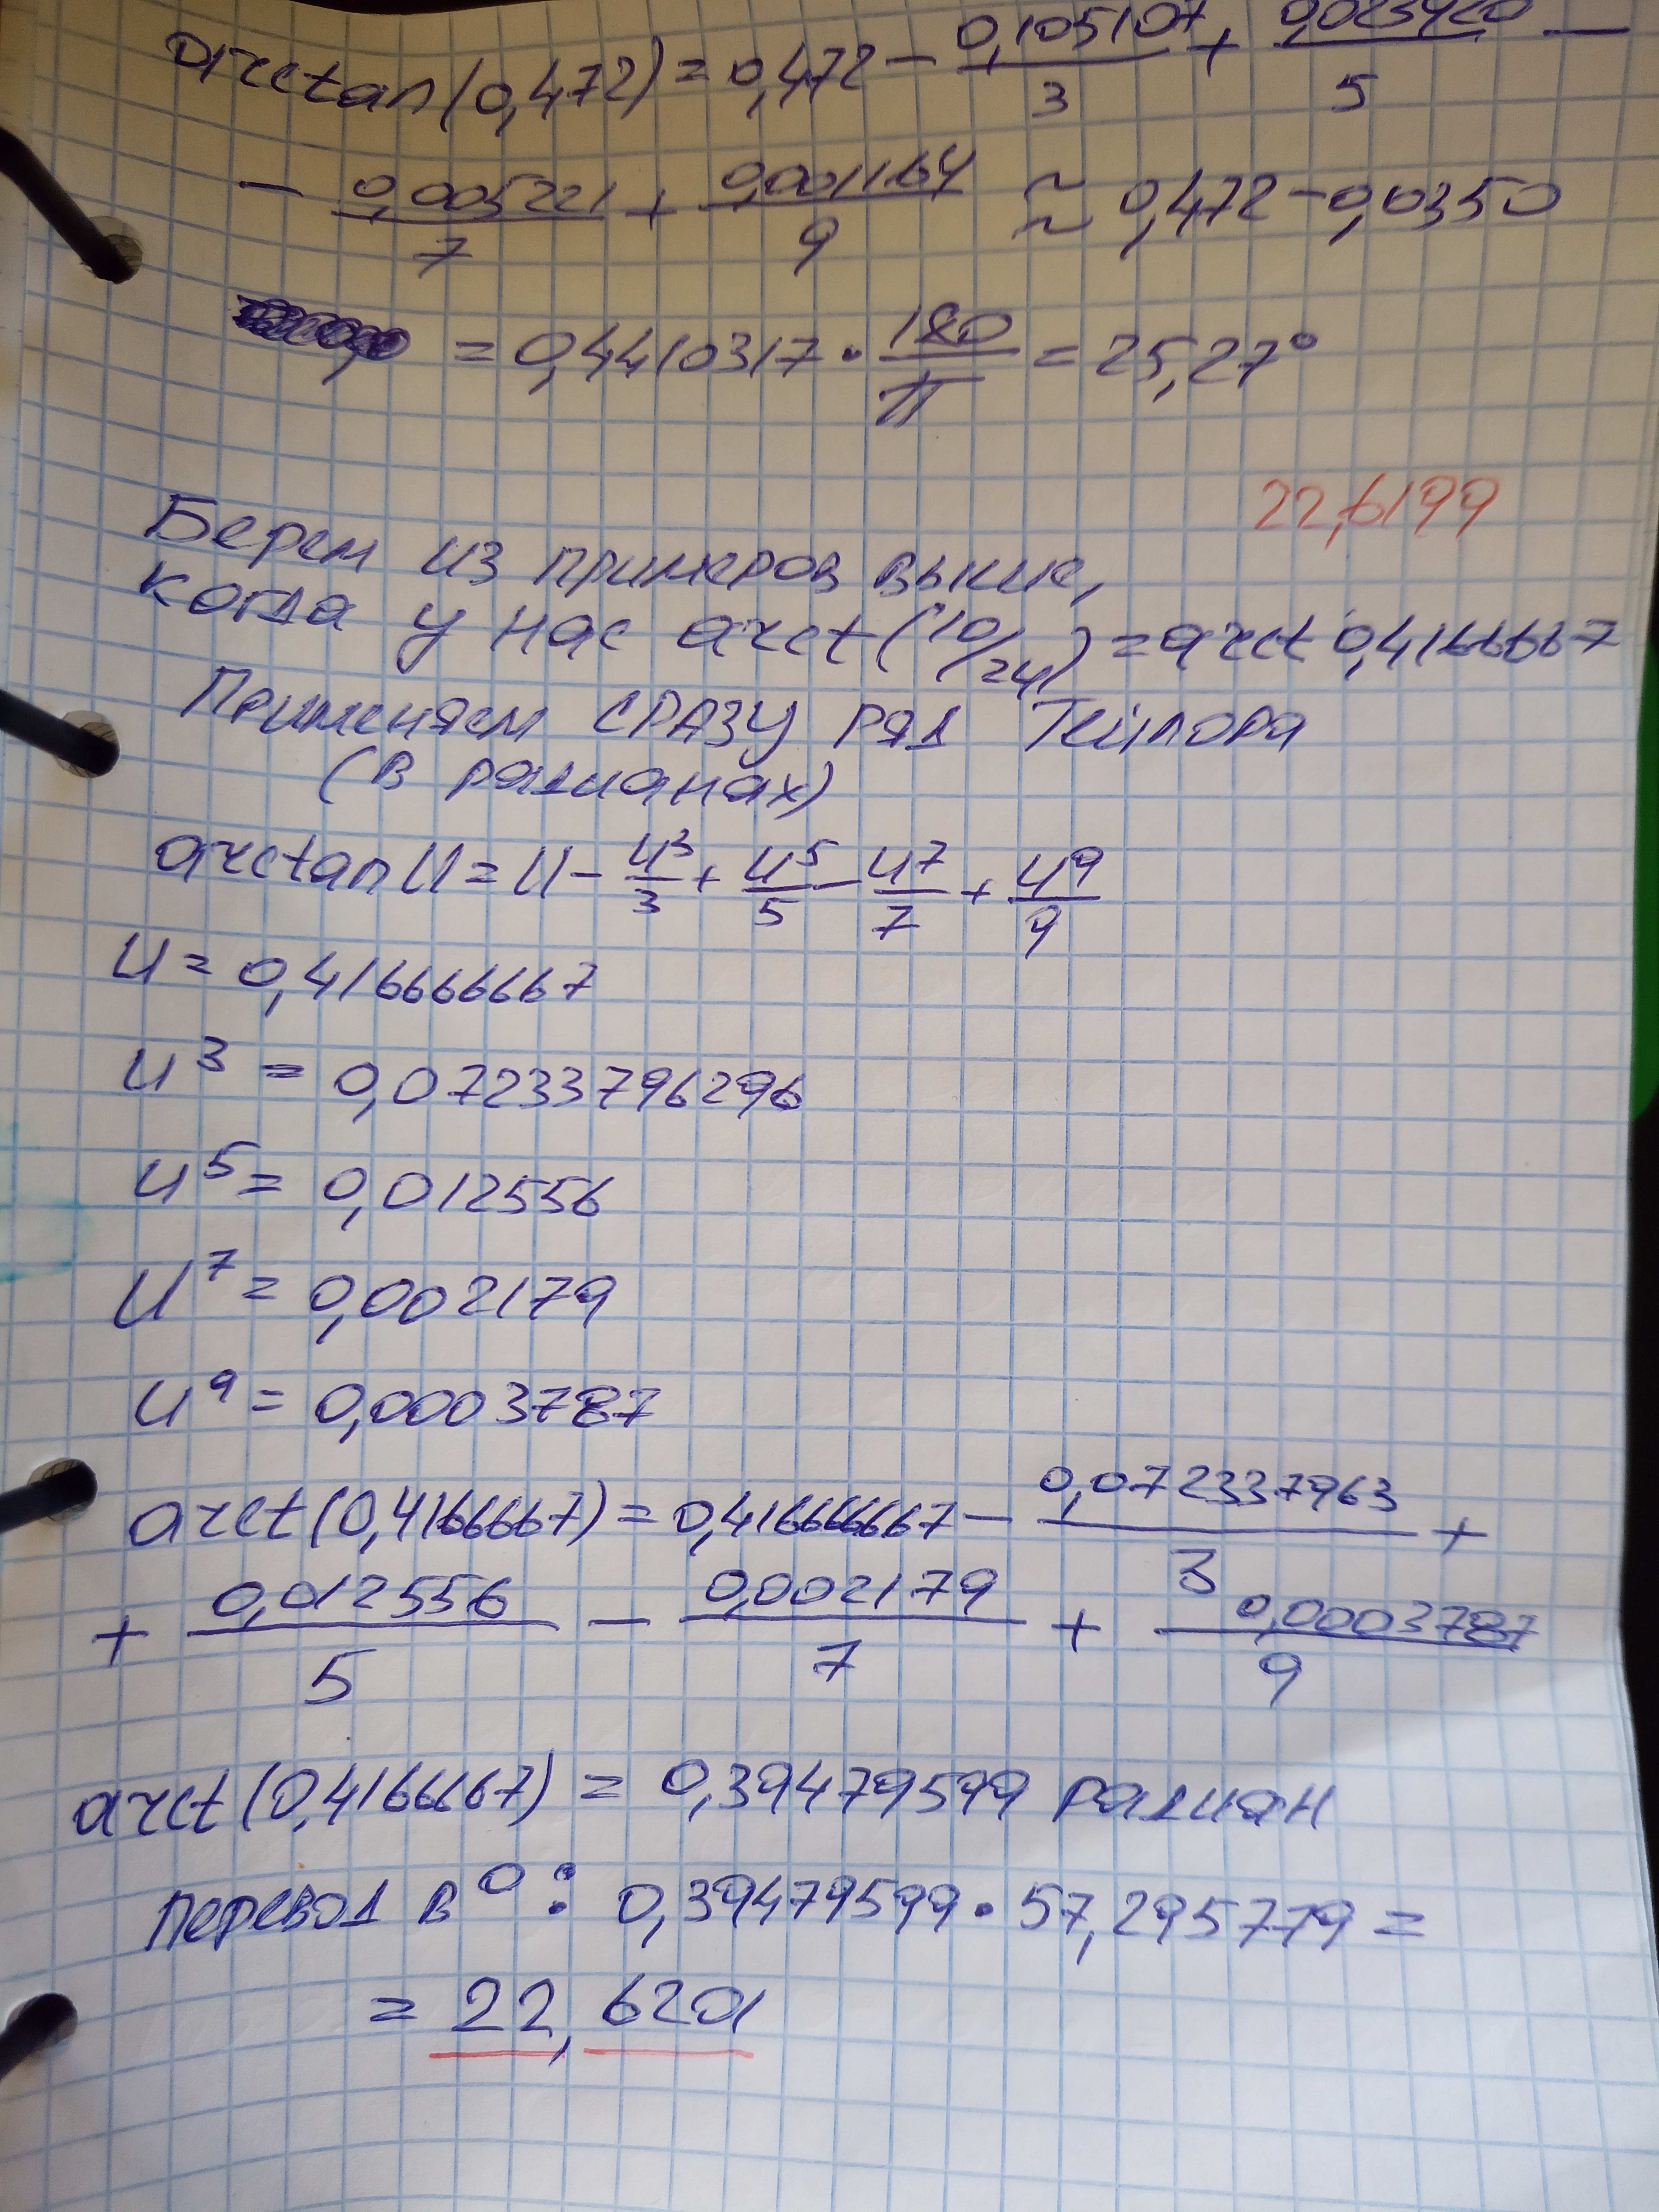 arctan(0,472) = 0,472 - 0,105107/3 + 0,023420/5 -
- 0,005221/7 + 0,001164/9 ≈ 0,472 - 0,0350
= 0,4410317 · 180/π = 25,27°
22,6199
Берем из примеров выше,
когда у нас arct(10/24) = arct 0,4166667
Применяем СРАЗУ ряд Тейлора
(в радианах)
arctan U = U - U³/3 + U⁵/5 - U⁷/7 + U⁹/9
U = 0,416666667
U³ = 0,07233796296
U⁵ = 0,012556
U⁷ = 0,002179
U⁹ = 0,0003787
arct(0,4166667) = 0,416666667 - 0,072337963/3 +
+ 0,012556/5 - 0,002179/7 + 0,0003787/9
arct(0,4166667) = 0,39479599 радиан
перевод в °: 0,39479599 · 57,295779 =
= 22,6201